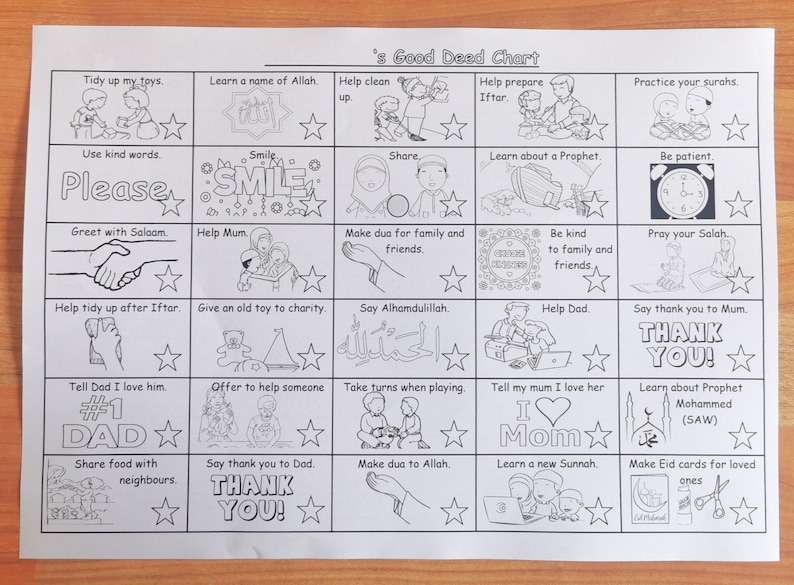 's Good Deed Chart
Tidy up my toys.
Learn a name of Allah.
الله
Help clean
up.
Help prepare
Iftar.
Practice your surahs.
Use kind words.
Please
Smile.
SMILE
Share.
Learn about a Prophet.
Be patient.
Greet with Salaam.
Help Mum.
Make dua for family and
friends.
Be kind
to family and
friends.
CHOOSE
KINDNESS
Pray your Salah.
Help tidy up after Iftar.
Give an old toy to charity.
Say Alhamdulillah.
الْحَمْدُ لِلّٰه
Help Dad.
Say thank you to Mum.
THANK
YOU!
Tell Dad I love him.
#1
DAD
Offer to help someone
Take turns when playing.
Tell my mum I love her
I
Mom
Learn about Prophet
Mohammed
(SAW)
محمد
Share food with
neighbours.
Say thank you to Dad.
THANK
YOU!
Make dua to Allah.
Learn a new Sunnah.
Make Eid cards for loved
ones
Eid Mubarak